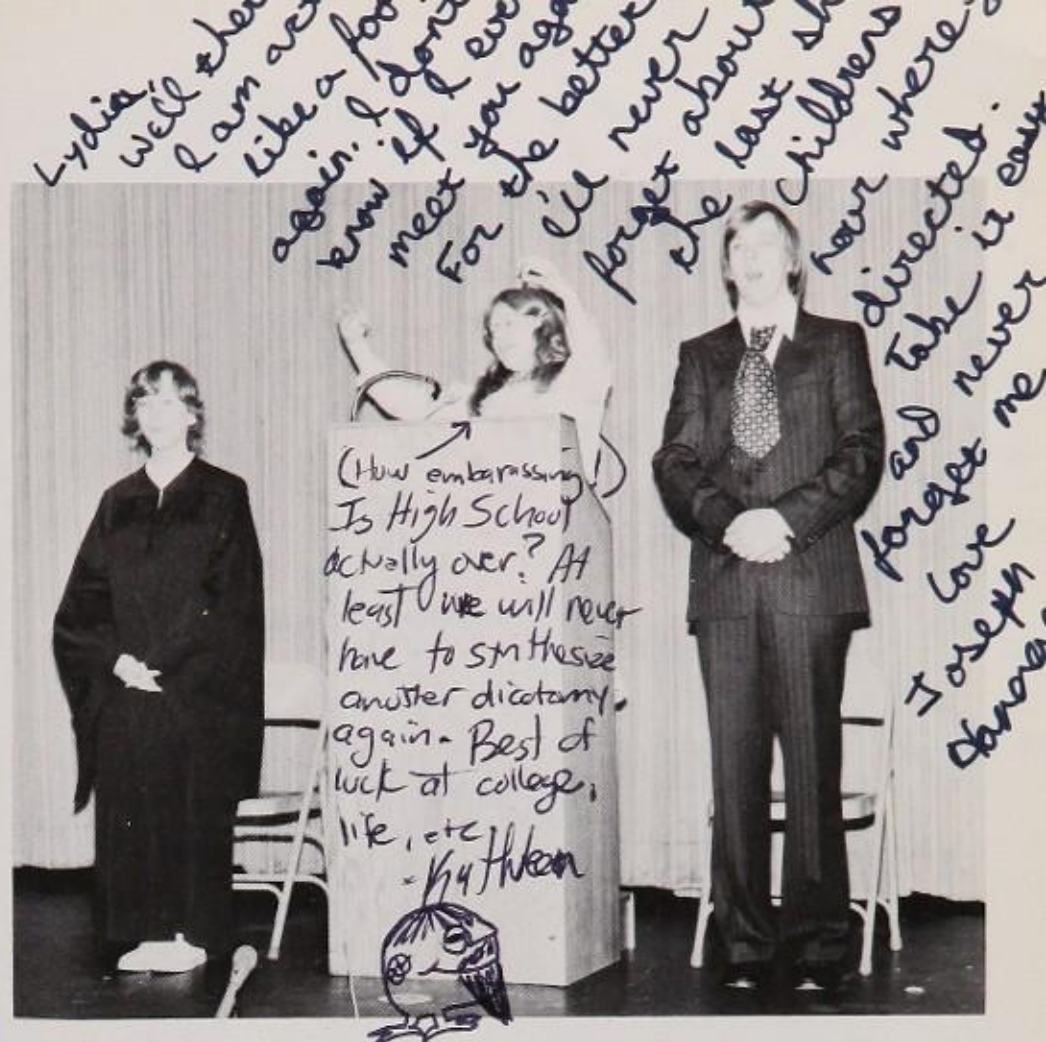 Lydia,
Well ther
I am act
like a foo
again. I don't
know if I eve
meet you aga
For the better
I'll never
forget about
the last sh
childrens
hour where
directed.
take it easy
and never
forget me
Love
Joseph
(How embarassing!)
Is High School
actually over? At
least we will never
have to synthesize
another dicotomy.
again. Best of
luck at college,
life, etc
- Kathleen